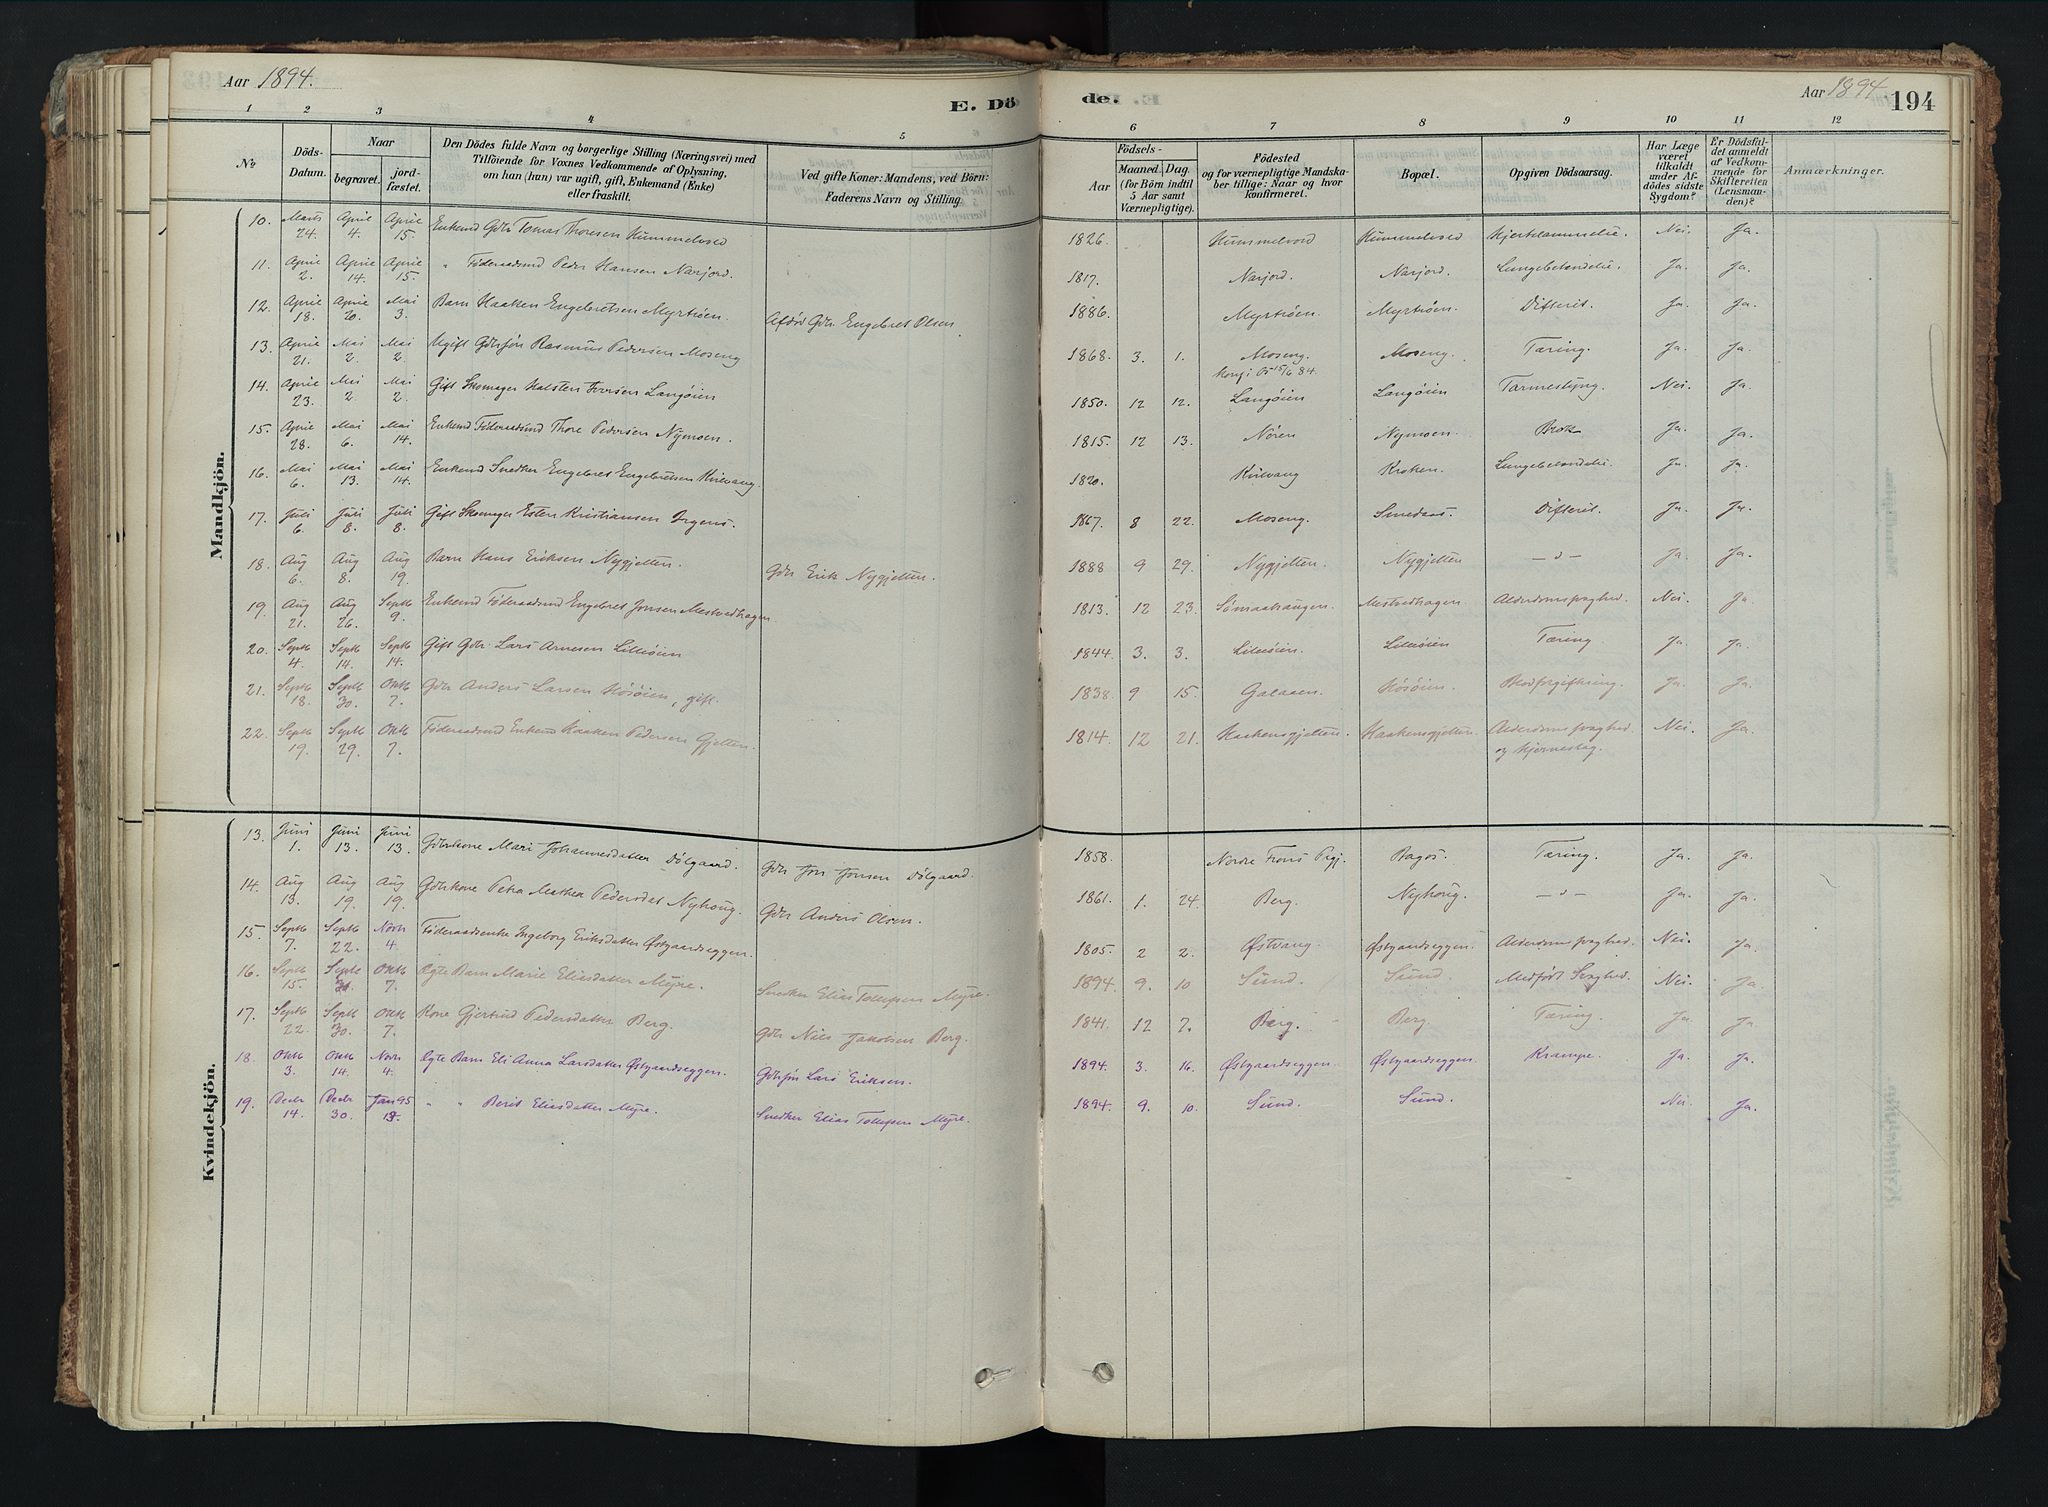 Aar 1894.
E. Dö
de.
Aar 1894
194
1 2 3 4 5 6 7 8 9 10 11 12
No
Döds-Datum.
Naar
begravet.
jord-fæstet.
Den Dödes fulde Navn og borgerlige Stilling (Næringsvei) med
Tilföiende for Voxnes Vedkommende af Oplysning,
om han (hun) var ugift, gift, Enkemand (Enke)
eller fraskilt.
Ved gifte Koner: Mandens, ved Börn:
Faderens Navn og Stilling.
Födsels-
Aar
Maaned Dag
(for Börn indtil
5 Aar samt
Værnepligtige).
Födested
og for værnepligtige Mandska-
ber tillige: Naar og hvor
konfirmeret.
Bopæl.
Opgiven Dödsaarsag.
Har Læge
været
tilkaldt
under Af-
dödes sidste
Sygdom?
Er Dödsfal-
det anmeldt
af Vedkom-
mende for
Skifteretten
(Lensman-
den)?
Anmærkninger.
Mandkjön.
10. Marts 24. April 4. April 15. Enkemd Gdr Tomas Thoresen Hummelvold 1826. Hummelvold Hummelvold Nei. Ja.
11. April 2. April 14. April 15. " Föderaadsmd Peder Hansen Narjord. 1817. Narjord. Narjord. Lungebetændelse. Ja. Ja.
12. April 18. April 20. Mai 3. Barn Haaken Engebretsen Myrtrøen. Afdød Gdr Engebret Olsen 1886. Myrtrøen. Myrtrøen. Difterit. Ja. Ja.
13. April 21. Mai 2. Mai 2. Ugift Gdrsøn Rasmus Pedersen Moseng 1868. 3. 1. Moseng. Moseng. Tæring. Ja. Ja.
Konf: Os 15/6 84.
14. April 23. Mai 2. Mai 2. Gift Skomager Halsten Iversen Langøien 1850. 12 12. Langøien Langøien Tarmeslyng. Nei. Ja.
15. April 28. Mai 6. Mai 14. Enkemd Föderaadsmd Thore Pedersen Nymoen. 1815. 12 13. Nören Nymoen. Brok Ja. Ja.
16. Mai 6. Mai 13. Mai 14. Enkemd Snedker Engebret Engebretsen Kulvang. 1820. Kulvang Kroken. Lungebetændelse. Ja. Ja.
17. Juli 6. Juli 8. Juli 8. Gift Skomager Esten Kristiansen Irgens. 1867. 8 22. Moseng. Smedaas. Difterit. Ja. Ja.
18. Aug 6. Aug 8. Aug 19. Barn Hans Eriksen Nygjelten. Gdr Erik Nygjelten. 1888 9 29. Nygjelten. Nygjelten – " – Ja. Ja.
19. Aug 21. Aug 26. Septb 9. Enkemd Föderaadsmd Engebret Jonsen Mestvedhagen 1813. 12 23. Sømaahaugen. Mestvedhagen Alderdomssvaghed. Nei. Ja.
20. Septb 4. Septb 14. Septb 14. Gift Gdr. Lars Arnesen Lilleøien 1844. 3. 3. Lilleøien. Lilleøien Tæring Ja. Ja.
21. Septb 18. Septb 30. Oktb 7. Gdr Anders Larsen Kösøien, gift. 1838. 9 15. Galaaen. Kösøien. Blodforgiftning. Ja. Ja.
22. Septb 19. Septb 29. Oktb 7. Föderaadsmd Enkemd Haaken Pedersen Gjelten. 1814. 12 21. Haakensgjelten. Haakensgjelten. Alderdomssvaghed Nei. Ja.
og Hjerneslag.
Kvindekjön.
13. Juni 1. Juni 13. Juni 13. Gdrkone Mari Johannesdatter Dölgaard. Gdr Jon Jonsen Dölgaard. 1858. Nordre Frons Prgj. Tæring. Ja. Ja.
14. Aug 13. Aug 19. Aug 19. Gdrkone Petra Mathea Pedersdat Nyhoug. Gdr Anders Olsen. 1861. 1. 24. Berg. Nyhoug. – " – Ja. Ja.
15. Septb 7. Septb 22. Novb 4. Föderaadsenke Ingeborg Eriksdatter Østgaardseggen. 1805. 2 2. Østvang. Østgaardseggen. Alderdomssvaghed. Nei. Ja.
16. Septb 15. Septb Oktb 7. Ægte Barn Marie Eliasdatter Myre. Snedker Elias Tollefsen Myre. 1894. 9. 10 Sund. Sund. Medfødt Svaghed. Nei. Ja.
17. Septb 22. Septb 30. Oktb 7. Kone Gjertrud Pedersdatter Berg. Gdr Nils Jakobsen Berg. 1841. 12 7. Berg. Berg. Tæring. Ja. Ja
18. Oktb 3. Oktb 14. Novb 4. Ægte Barn Eli Anna Larsdatter Østgaardseggen. Gdrsøn Lars Eriksen. 1894. 3. 16. Østgaardseggen. Østgaardseggen. Krampe. Ja. Ja.
19. Decbr 14. Decbr 30. Jan 95 13. " " Berit Eliasdatter Myre. Snedker Elias Tollefsen Myre. 1894. 9. 10. Sund. Sund. Nei. Ja.